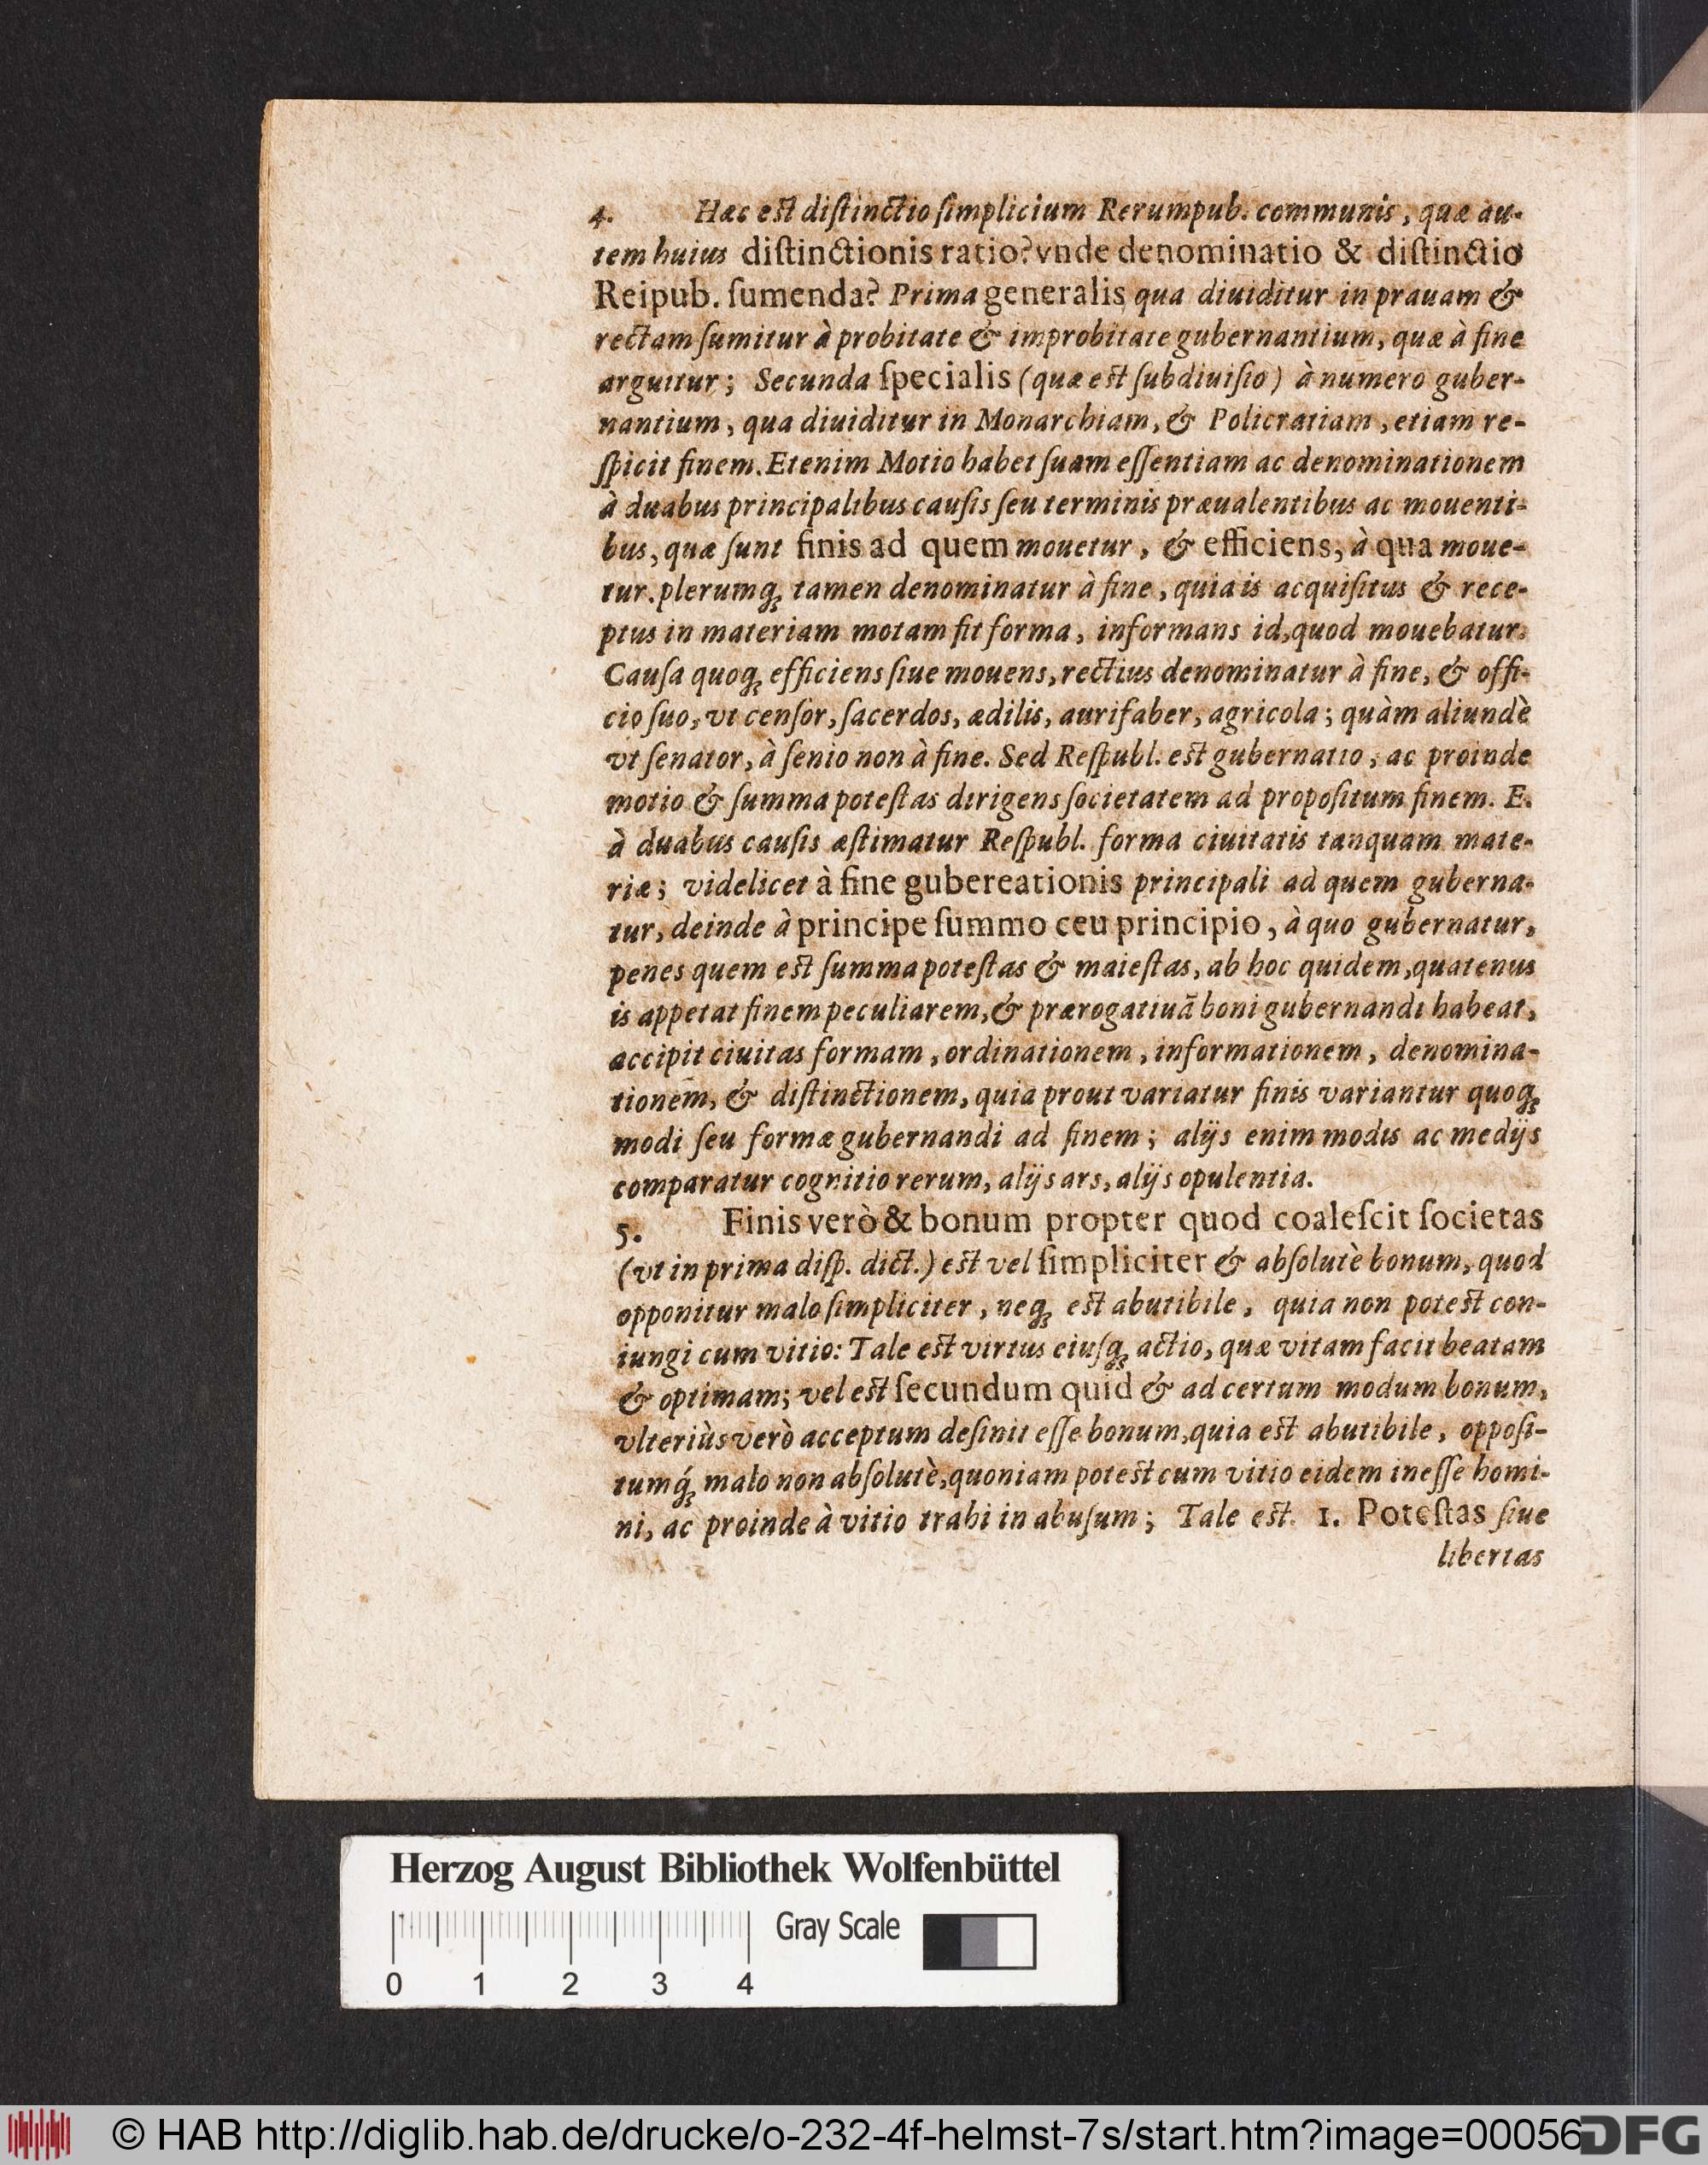 4. Hæc eſt diſtinctio ſimplicium Rerumpub. communis, quæ au-
tem huius diſtinctionis ratio? vnde denominatio & diſtinctio
Reipub. ſumenda? Prima generalis qua diuiditur in prauam &
rectam ſumitur à probitate & improbitate gubernantium, quæ à fine
arguitur; Secunda ſpecialis (quæ eſt ſubdiuiſio) à numero guber-
nantium, qua diuiditur in Monarchiam, & Policratiam, etiam re-
ſpicit finem. Etenim Motio habet ſuam eſſentiam ac denominationem
à duabus principalibus cauſis ſeu terminis præualentibus ac mouenti-
bus, quæ ſunt finis ad quem mouetur, & efficiens, à qua moue-
tur. plerumq́; tamen denominatur à fine, quia is acquiſitus & rece-
ptus in materiam motam fit forma, informans id, quod mouebatur.
Cauſa quoq; efficiens ſiue mouens, rectius denominatur à fine, & offi-
cio ſuo, vt cenſor, ſacerdos, ædilis, aurifaber, agricola; quàm aliundè
vt ſenator, à ſenio non à fine. Sed Reſpubl. eſt gubernatio, ac proinde
motio & ſumma poteſtas dirigens ſocietatem ad propoſitum finem. E.
à duabus cauſis æſtimatur Reſpubl. forma ciuitatis tanquam mate-
riæ; videlicet à fine gubereationis principali ad quem guberna-
tur, deinde à principe ſummo ceu principio, à quo gubernatur,
penes quem eſt ſumma poteſtas & maieſtas, ab hoc quidem, quatenus
is appetat finem peculiarem, & prærogatiuã boni gubernandi habeat,
accipit ciuitas formam, ordinationem, informationem, denomina-
tionem, & diſtinctionem, quia prout variatur finis variantur quoq;
modi ſeu formæ gubernandi ad finem; alijs enim modis ac medijs
comparatur cognitio rerum, alijs ars, alijs opulentia.
5. Finis verò & bonum propter quod coaleſcit ſocietas
(vt in prima diſp. dict.) eſt vel ſimpliciter & abſolutè bonum, quod
opponitur malo ſimpliciter, neq; eſt abutibile, quia non poteſt con-
iungi cum vitio: Tale eſt virtus eiuſq; actio, quæ vitam facit beatam
& optimam; vel eſt ſecundum quid & ad certum modum bonum,
vlteriùs verò acceptum deſinit eſſe bonum, quia eſt abutibile, oppoſi-
tumq́; malo non abſolutè, quoniam poteſt cum vitio eidem ineſſe homi-
ni, ac proinde à vitio trahi in abuſum; Tale eſt. 1. Poteſtas ſiue
libertas
Herzog August Bibliothek Wolfenbüttel
Gray Scale
0 1 2 3 4
© HAB http://diglib.hab.de/drucke/o-232-4f-helmst-7s/start.htm?image=00056
DFG